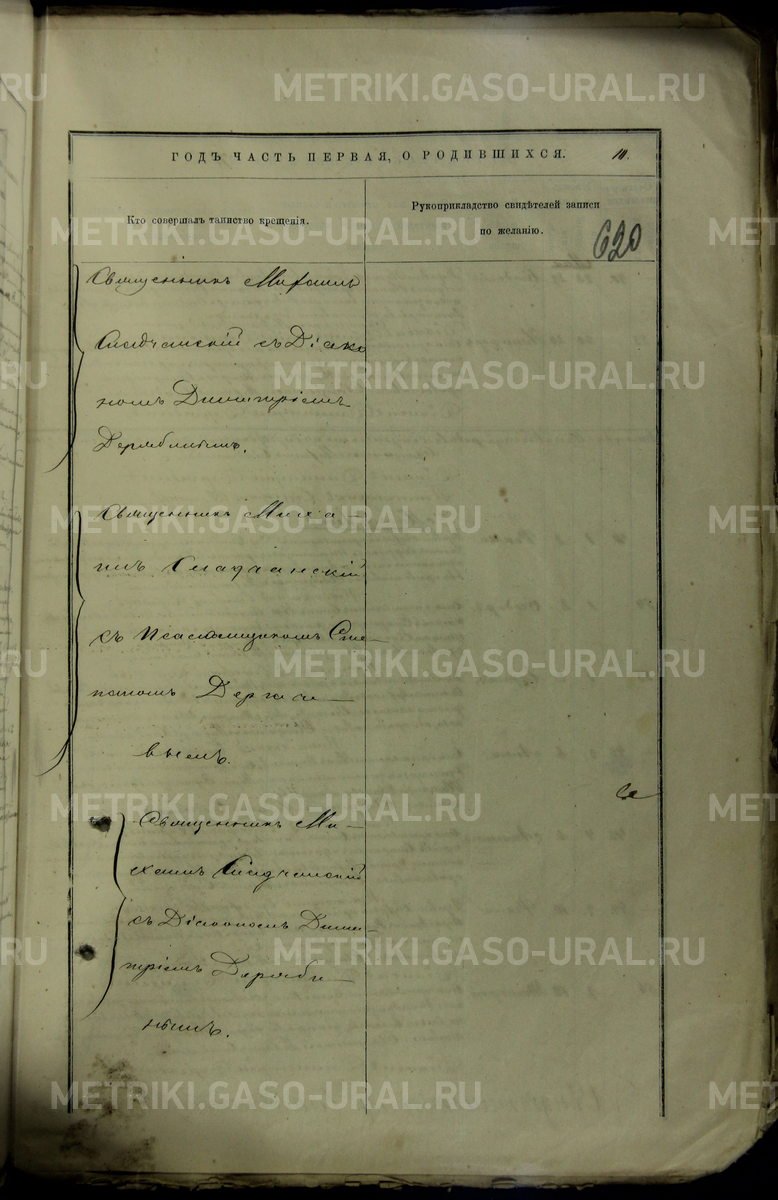 ГОДЪ ЧАСТЬ ПЕРВАЯ, О РОДИВШИХСЯ. 10.
Кто совершалъ таинство крещенія.
Рукоприкладство свидѣтелей записи
по желанію.
620
Священникъ Михаилъ
Сладчанскій съ Діако
номъ Димитріемъ
Дерябинымъ.
Священникъ Миха-
илъ Сладчанскій
съ Псаломщикомъ Сте-
паномъ
вымъ.
Священникъ Ми-
хаилъ Сладчанскій
съ Діакономъ Дими-
тріемъ Деряби-
нымъ.
METRIKI.GASO-URAL.RU